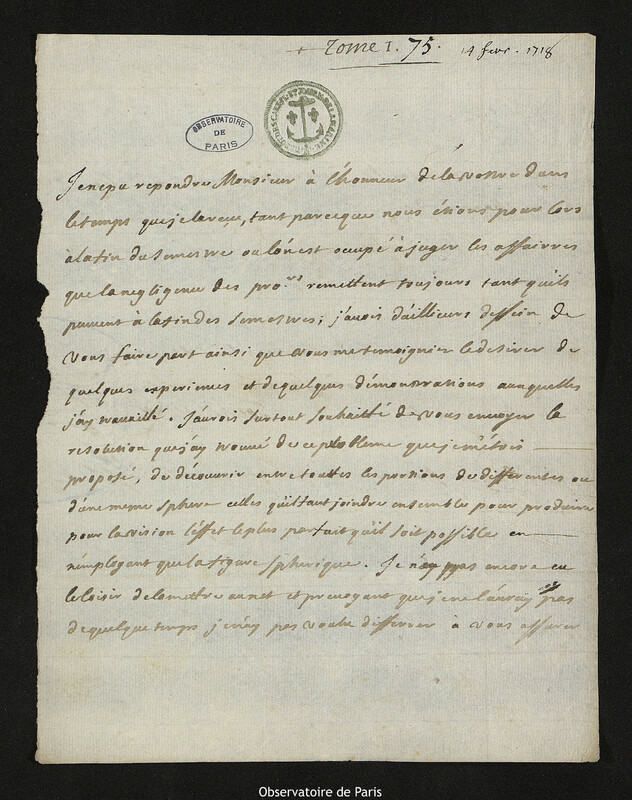 + Tome I. 75. 14 fevr. 1718
OBSERVATOIRE
DE
PARIS
Je n'ep u repondre Monsieur à l'honneur de la vostre dans
le temps que je la reçu, tant parceque nous étions pour lors
à la fin du semestre ou lón est occupé à juger les affairres
que la negligence des pro.rs remettent toujours tant qu'ils
peuvent à la fin des semestres; j'avois d'ailleurs dessein de
vous faire part ainsi que vous me temoigniez le desirer de
quelques experiences et de quelques démonstrations auxquelles
j'ay travaillé. J'aurois surtout souhaitté de vous envoyer la
resolution que j'ay trouvé de ce probleme que je m'étois
proposé, de découvrir entre touttes les portions de differentes ou
d'une meme sphere celles qu'il faut joindre ensemble pour produire
pour la vision l'effet le plus parfait qu'il soit possible en
n'employant que la figure spherique. Je n'ay pas encore eu
le loisir de la mettre au net et prevoyant que je ne l'auray pas
de quelque temps je n'ay pas voulu differrer à vous assurer
Observatoire de Paris